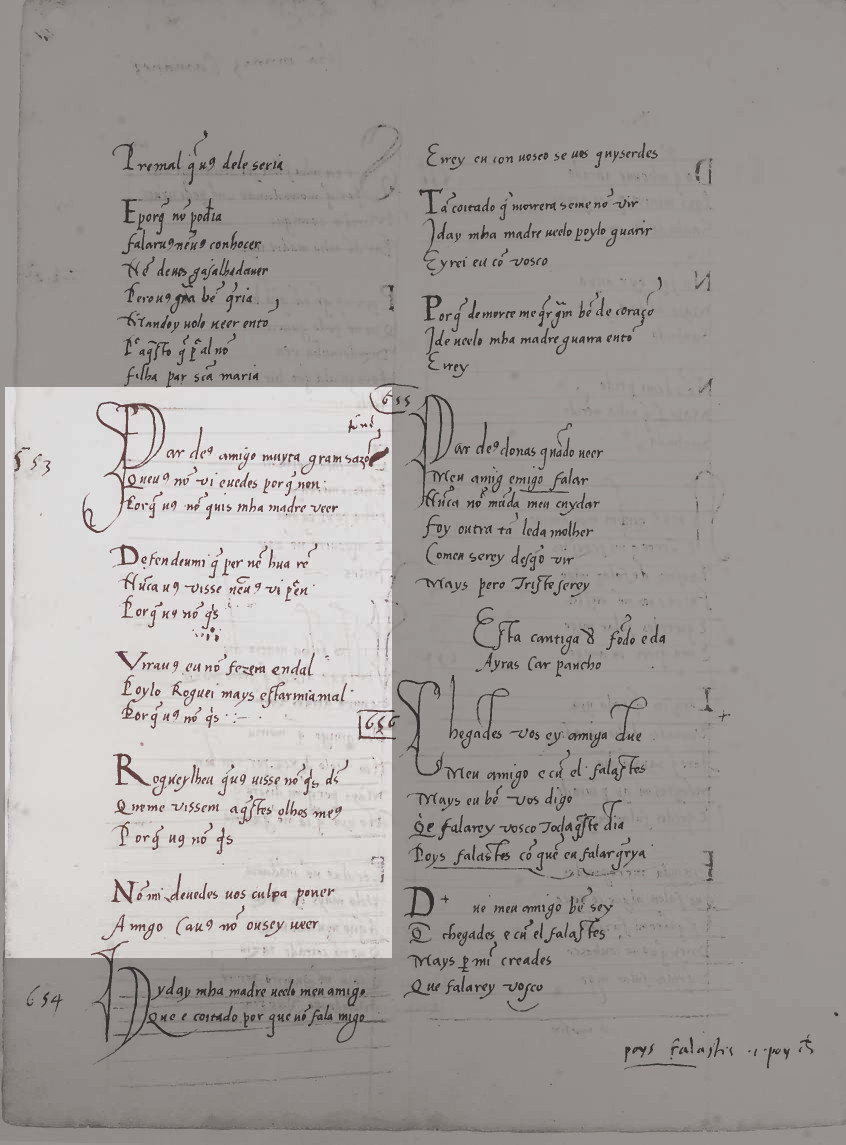 Premal q̄ uꝯ dele seria
E porq̄ nō podia
falaruꝯ nēuꝯ conhocer
Nē deuos gasalhadauer
Pero uꝯ grā bē q̄ria
Mandoy uolo ueer entō
P̄ aq̄sto q̄ p̄ al nō
filha par scā maria
653
Par deꝯ amigo muyta gram sazō
Queuꝯ nō vi euedes porq̄ non
Porq̄ uꝯ nō quis mha madre veer
Defendeumi q̄ per nē hua rē
Nūca uꝯ visse nēuꝯ vi p̄en
Porq̄ uꝯ nō q̇s
Virauꝯ eu nō fezera endal
Poylo Roguei mays estarmiamal
Porq̄ uꝯ nō q̇s
Rogueylheu q̄uꝯ uisse nō q̇s dꝯ
Queme vissem aq̄stes olhos meꝯ
Porq̄ uꝯ nō q̇s
Nō mi deuedes uos culpa poner
Amigo Cauꝯ nō ousey ueer
654
Hyday mha madre ueelo meu amigo
Que e coitado por que nō fala migo
Errey eu con uosco se uos quyserdes
Tā coitado q̄ morrera seme nō vir
Iday mha madre ueelo poylo guarir
Eyrei eu cō vosco
Porq̄ demorte me q̄r grm̄ bē de coraçō
Ide ueelo mha madre guarra entō
Errey
655
Par deꝯ donas quādo ueer
Meu amig emigo falar
Nūca nō mūda meu cuydar
foy outra tā leda molher
Comeu serey desq̄o vir
Mays pero Triste serey
Esta cantiga đ fōdo e da
Ayras Carpancho
656
Chegades vos ey amiga due
Meu amigo e cū el falastes
Mays eu bē vos digo
Q̇e falarey vosco Todaq̄ste dia
Poys falastes cō quē eu falar q̄rya
D+ ue meu amigo bē sey
Q̄ chegades e cū el falastes
Mays p̱ mī creades
Que falarey vosco
poys falastis .i. poy